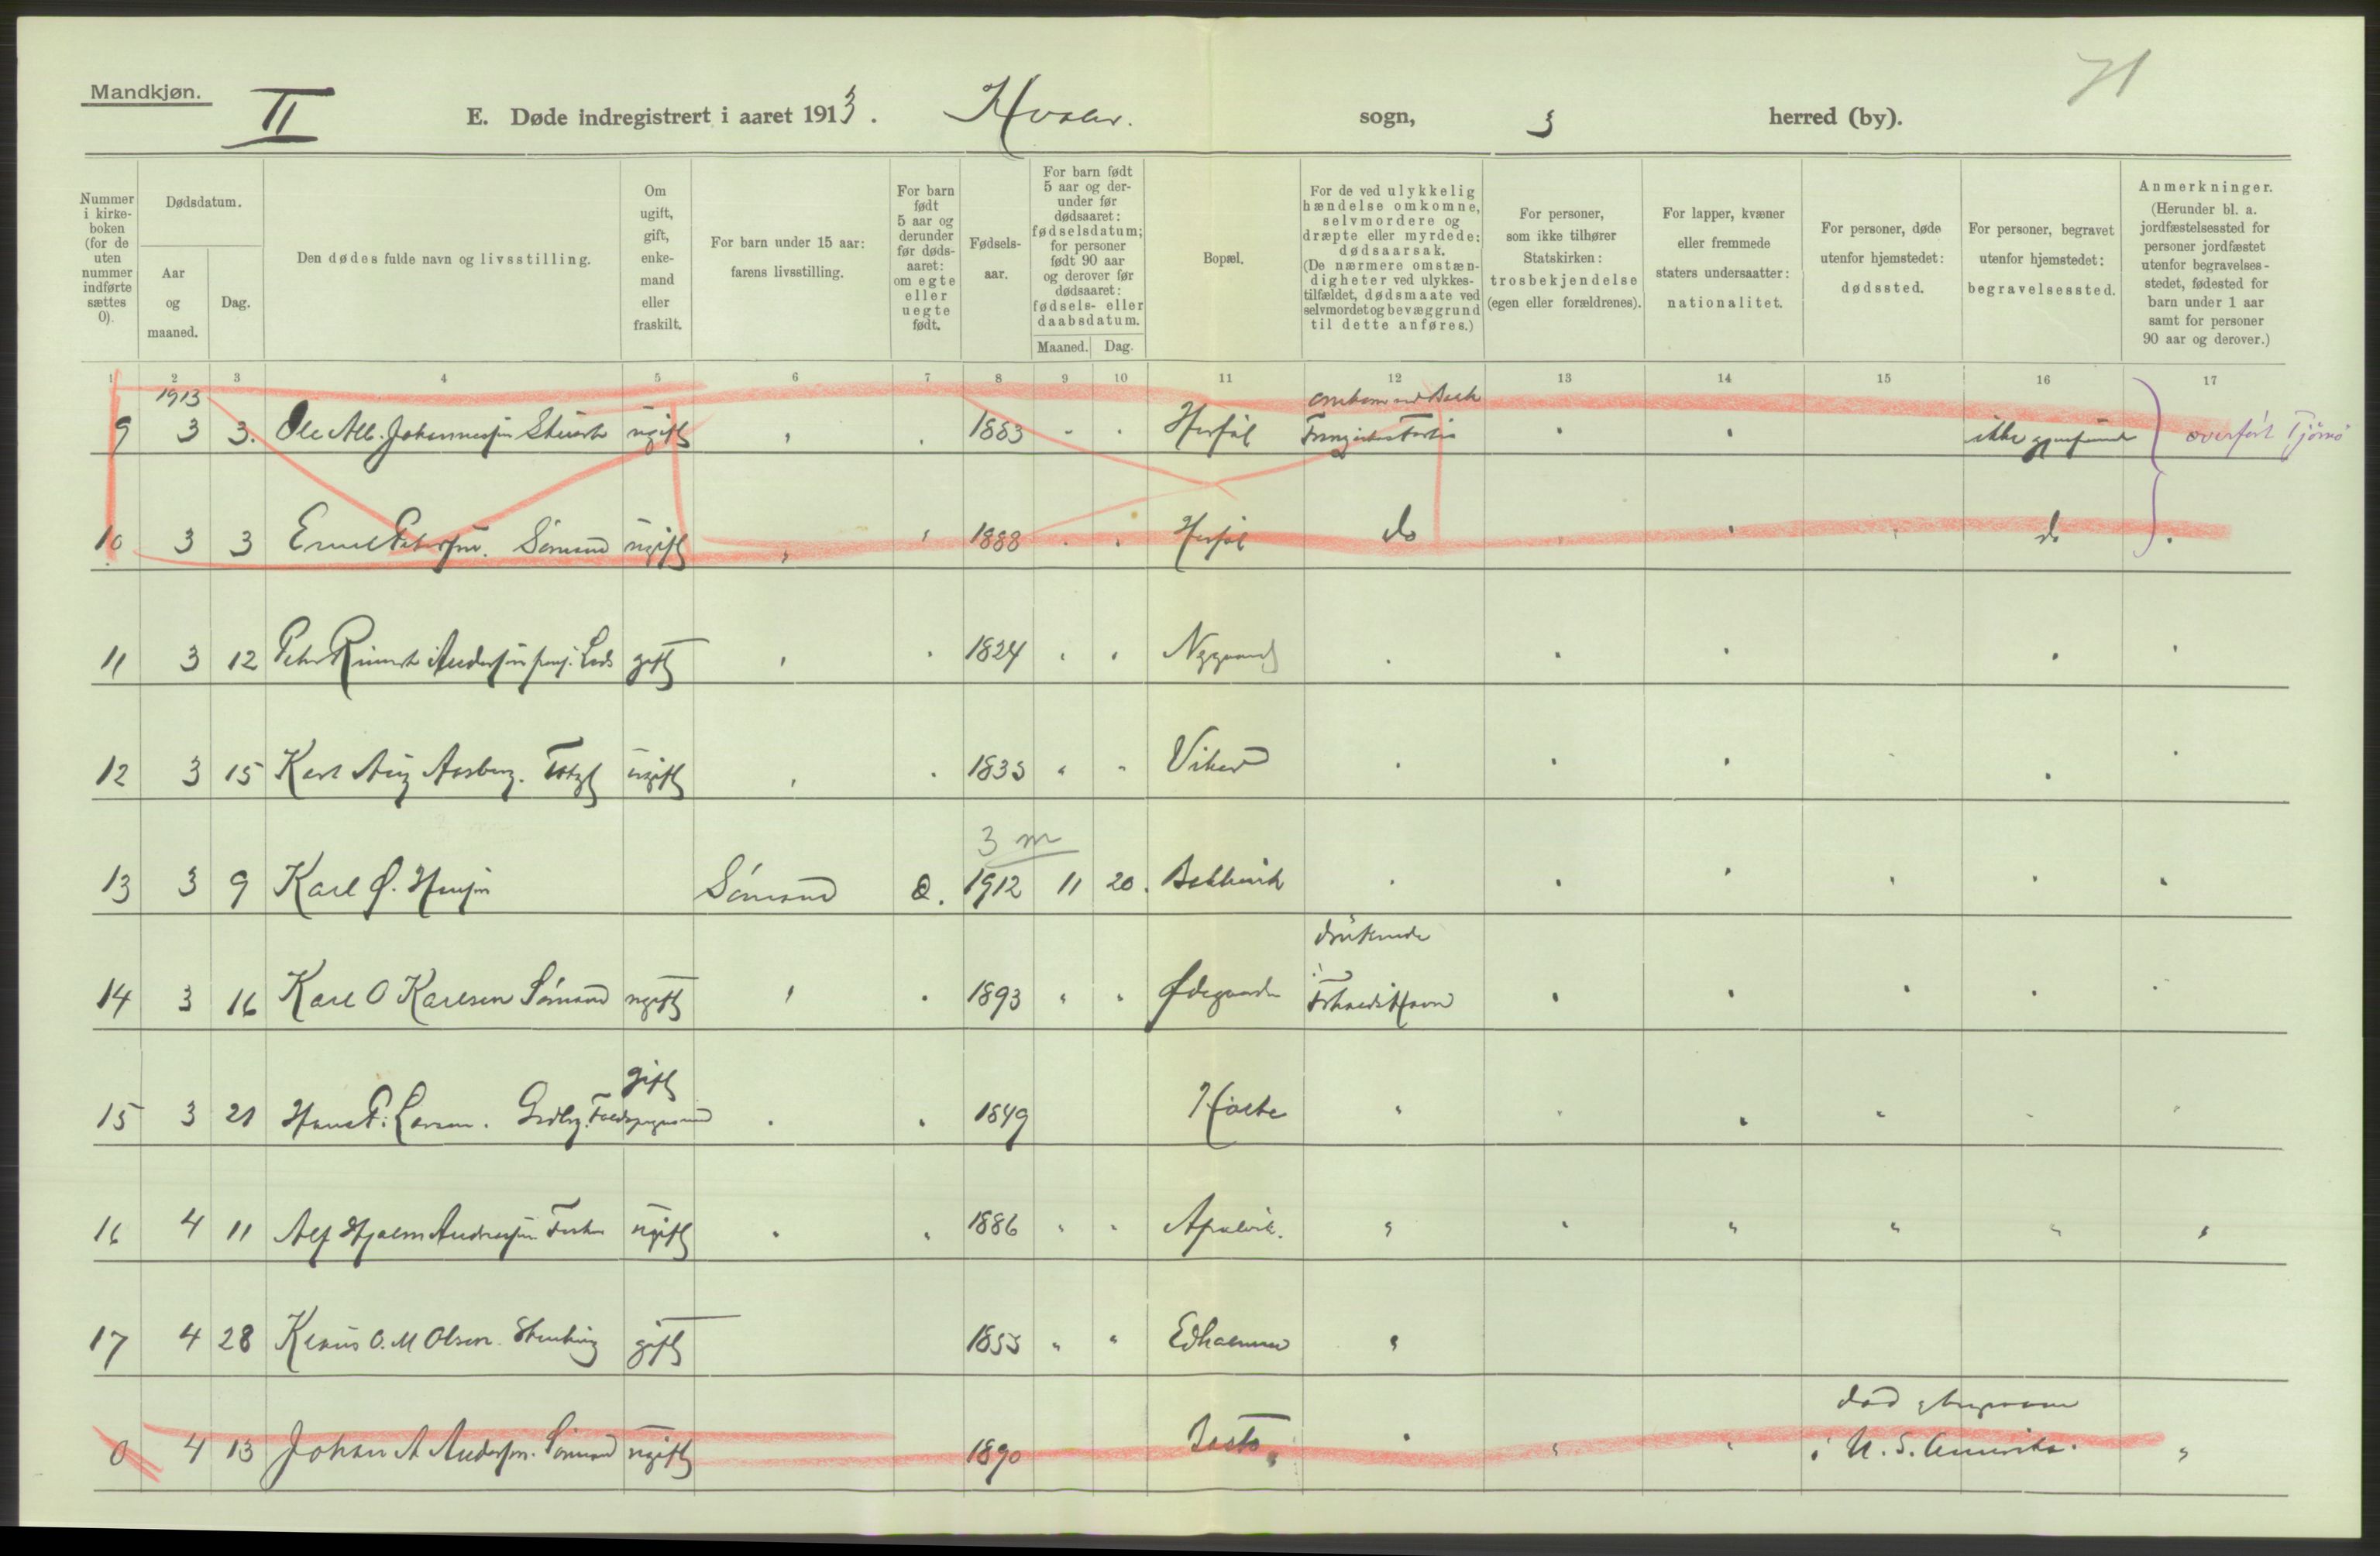 Mandkjøn.
II
E. Døde indregistrert i aaret 1913. Hvaler. sogn, herred (by).
71
Nummer i kirke-boken (for de uten nummer indførte sættes 0).
Dødsdatum.
Aar og maaned.
Dag.
Den dødes fulde navn og livsstilling.
Om ugift, gift, enke-mand eller fraskilt.
For barn under 15 aar: farens livsstilling.
For barn født 5 aar og derunder før døds-aaret: om egte eller uegte født.
Fødsels-aar.
For barn født 5 aar og der-under før dødsaaret: fødselsdatum; for personer født 90 aar og derover før dødsaaret: fødsels- eller daabsdatum.
Maaned.
Dag.
Bopæl.
For de ved ulykkelig hændelse omkomne, selvmordere og dræpte eller myrdede: dødsaarsak. (De nærmere omstæn-digheter ved ulykkes-tilfældet, dødsmaate ved selvmordet og bevæggrund til dette anføres.)
For personer, som ikke tilhører Statskirken: trosbekjendelse (egen eller forældrenes).
For lapper, kvæner eller fremmede staters undersaatter: nationalitet.
For personer, døde utenfor hjemstedet: dødssted.
For personer, begravet utenfor hjemstedet: begravelsessted.
Anmerkninger. (Herunder bl. a. jordfæstelsessted for personer jordfæstet utenfor begravelses-stedet, fødested for barn under 1 aar samt for personer 90 aar og derover.)
1 2 3 4 5 6 7 8 9 10 11 12 13 14 15 16 17
1913
9 3 3. Ole Alb. Johannessen ugift 1883 Herføl ikke overført Tjømø
10 3 3 Emil Petersen. Sømand ugift 1888 Herføl do do
11 3 12 Peter Andersen Lods gift 1824
12 3 15 Karl Aug Aasberg. ugift 1835 Viker
3 m
13 3 9 Karl Ø. Hansen Sømand 1912 11 20. Bekkevik
druknede
14 3 16 Karl O Karlsen Sømand ugift 1893 Ødegaarden i
gift
15 3 21 Hans P. Larsen. 1849
16 4 11 Alf Hjalm Andreassen Fisker ugift 1886 Apalvik.
17 4 28 Klaus O. M Olsen. Stenhug gift 1855 Edholmen
død
0 4 13 Johan A Andersen. Sømand ugift 1890 i U. S. Amerika.